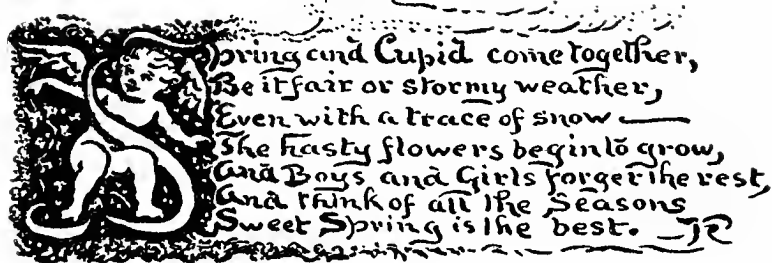 Spring and Cupid come together,
Be it fair or stormy weather,
Even with a trace of snow —
The hasty flowers begin to grow,
And Boys and Girls forget the rest,
And think of all the Seasons
Sweet Spring is the best. — JR